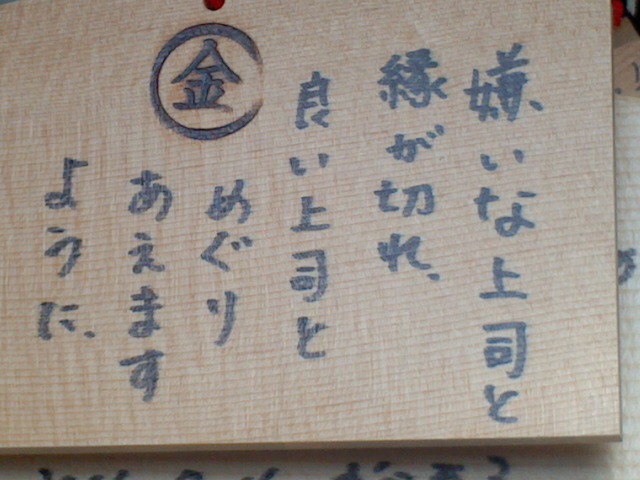 嫌いな上司と
縁が切れ、
良い上司と
めぐり
あえます
ように、
金